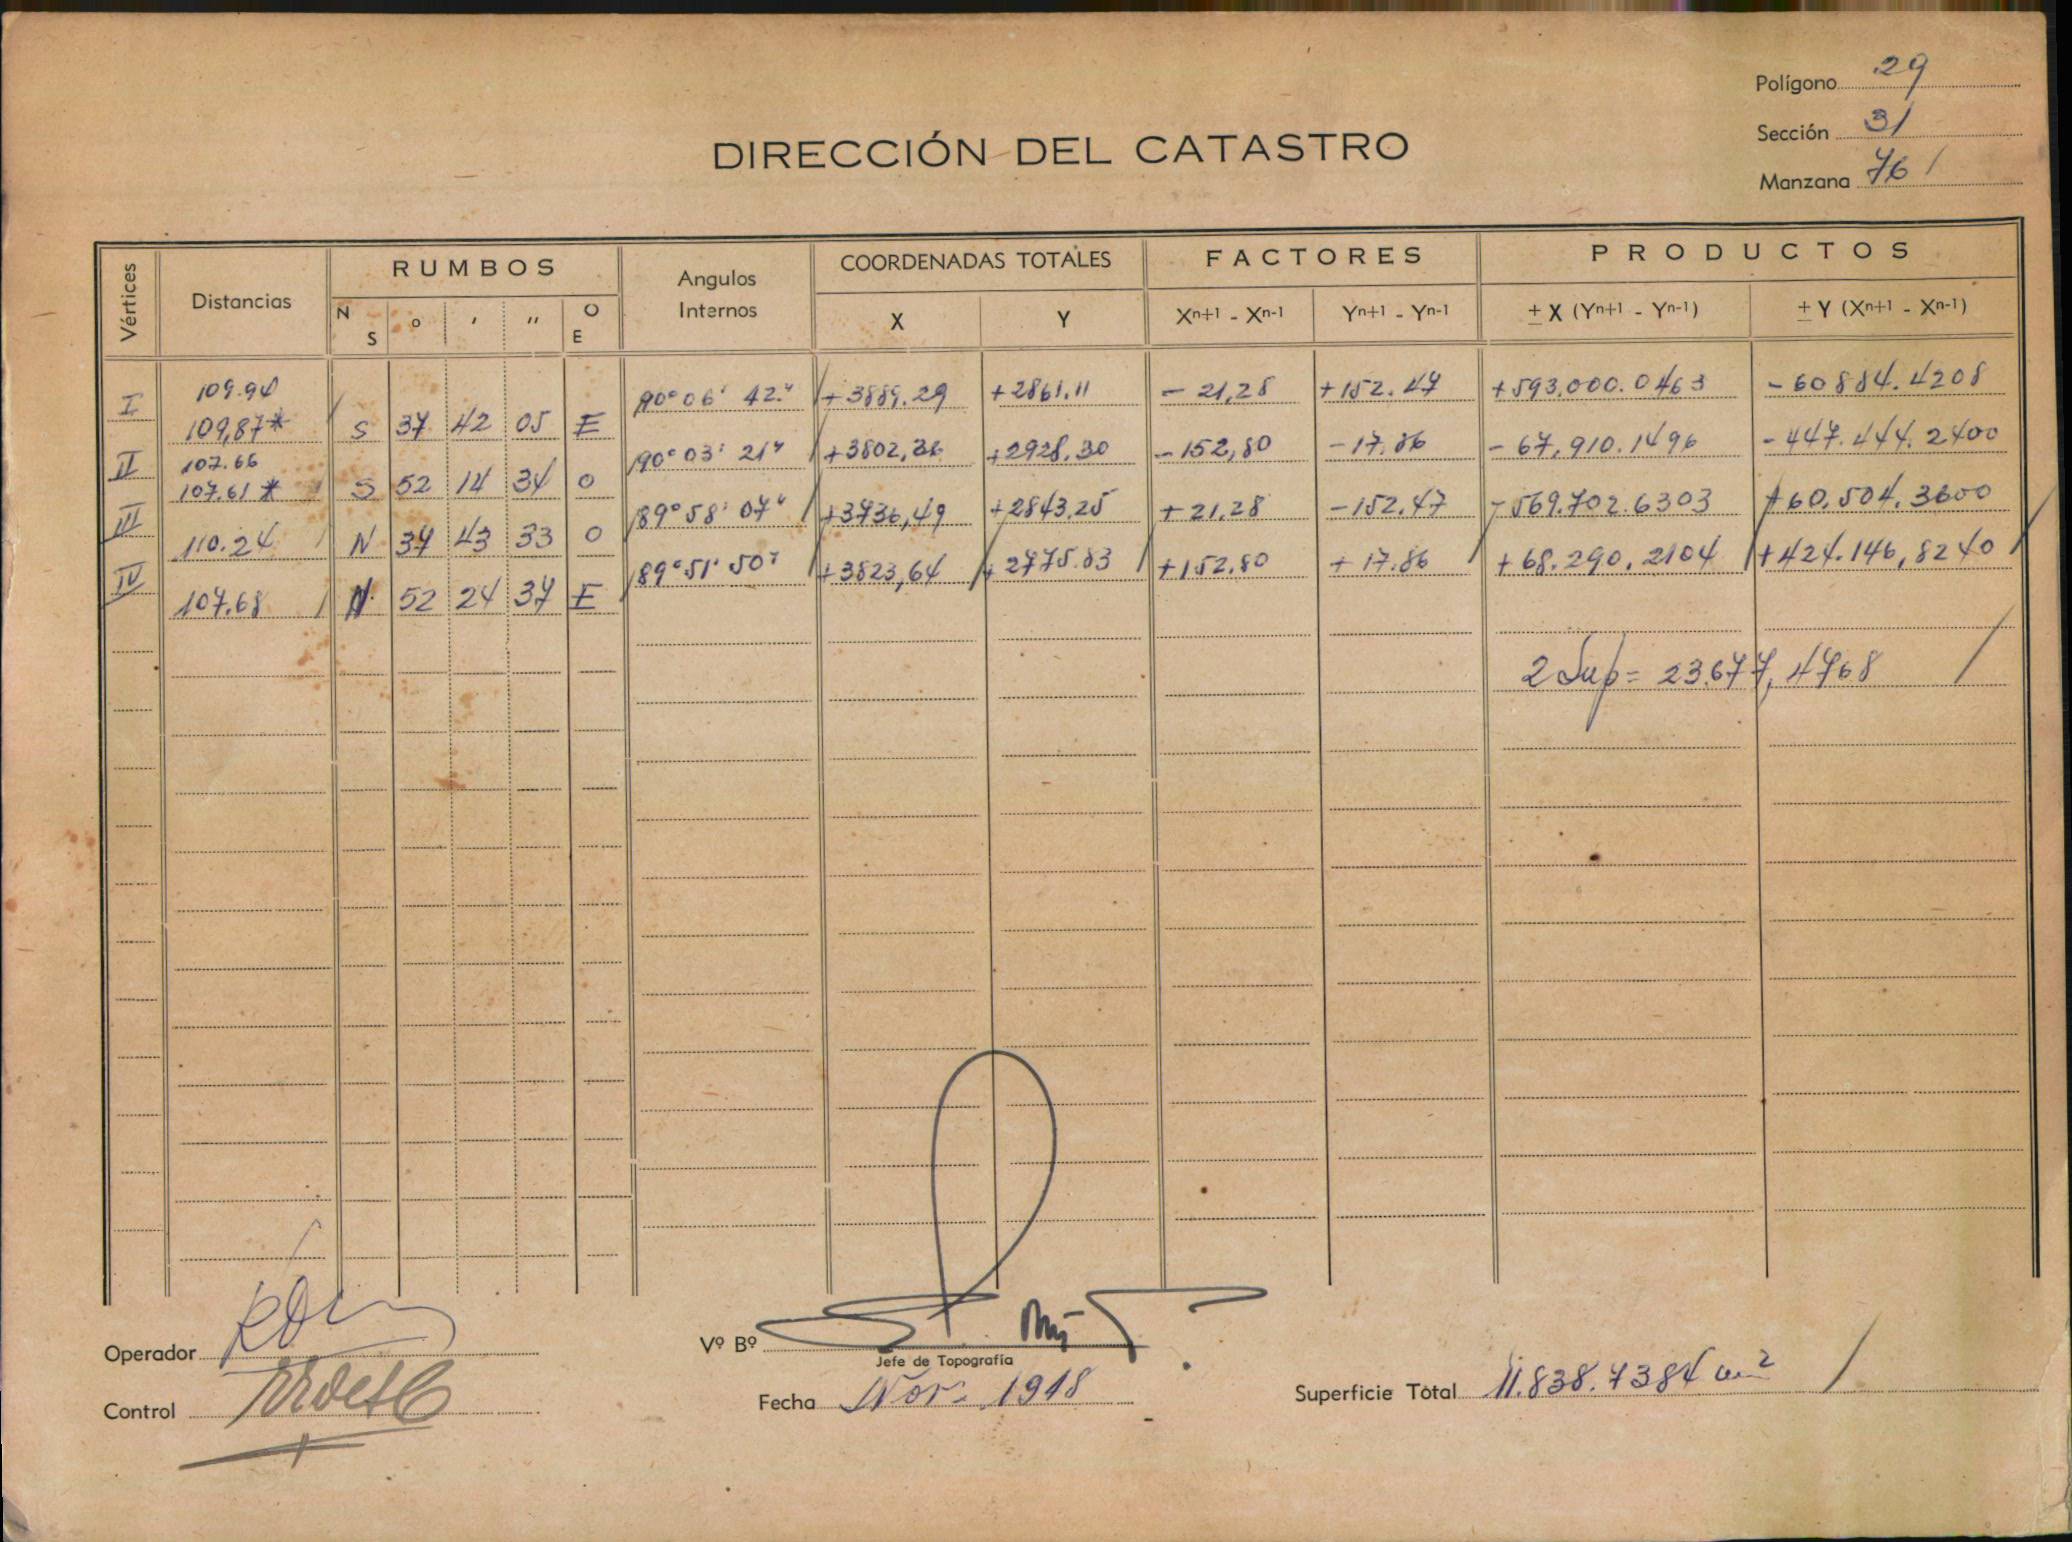 Polígono 29
Sección 31
Manzana 761
DIRECCIÓN DEL CATASTRO
Vértices Distancias RUMBOS Angulos Internos COORDENADAS TOTALES FACTORES PRODUCTOS
N S ° ' " O E X Y Xn+1 - Xn-1 Yn+1 - Yn-1 ± X (Yn+1 - Yn-1) ± Y (Xn+1 - Xn-1)
I 109.94 90° 06' 42" +3889.29 +2861.11 - 21,28 +152.47 +593,000.0463 -60884.4208
109,87* S 37 42 05 E
II 107.66 90° 03' 21" +3802,36 +2928,30 -152,80 -17.86 -67,910.1496 -447.444.2400
107.61* S 52 14 34 O
III 89° 58' 07" +3736,49 +2843,25 +21.28 -152.47 -569.702.6303 +60.504.3600
110.24 N 37 43 33 O
IV 89° 51' 50" +3823,64 +2775.83 +152.80 +17.86 +68.290.2104 +424.146,8240
107.68 N 52 24 37 E
2 Sup = 23.677,4768
Operador
Vº Bº
Jefe de Topografía
Control
Fecha Nov. 1948
Superficie Total 11.838.7384 m2